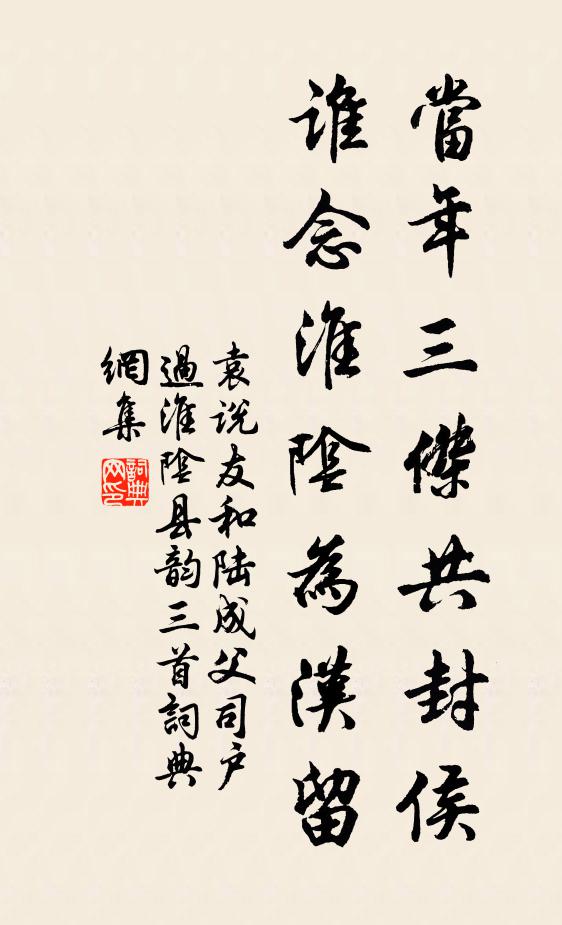 當年三傑共封侯
誰念淮陰為漢留
袁说友和陆成父司户
過淮陰县韵三首詞典
網集
詞典网印